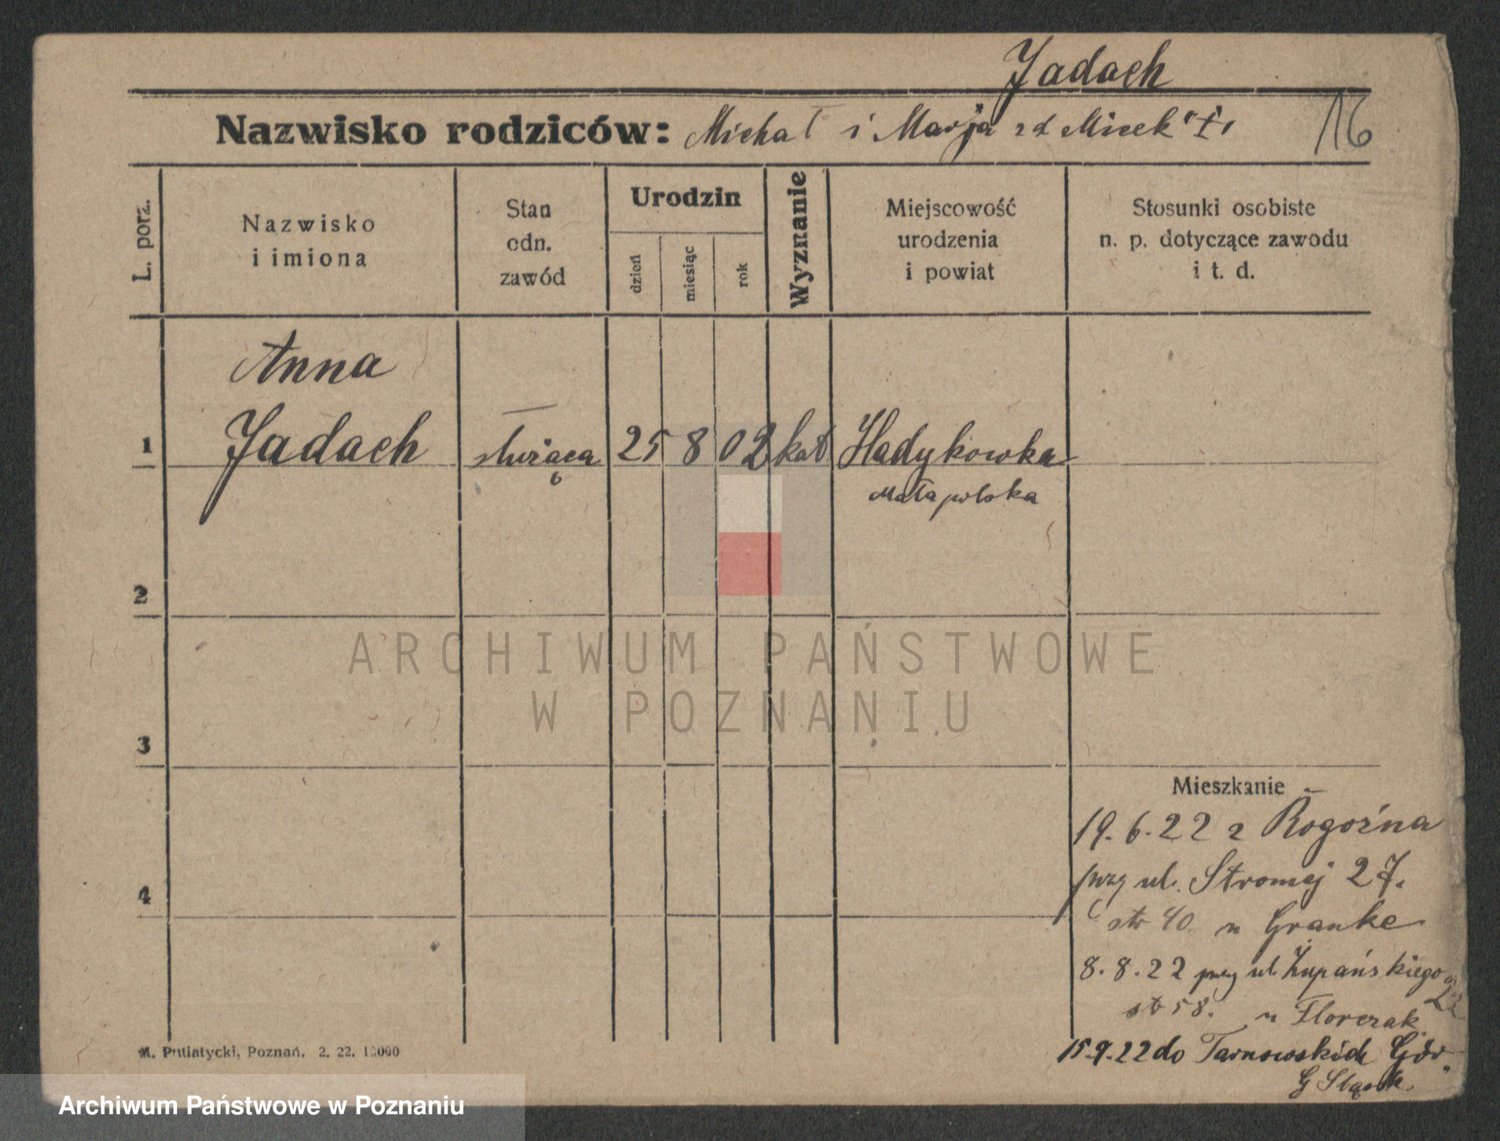 Jadach
Nazwisko rodziców: Michał i Marja zd Micek
16
L. porz.
Nazwisko
i imiona
Stan
odn.
zawód
Urodzin
dzień
miesiąc
rok
Wyznanie
Miejscowość
urodzenia
i powiat
Stosunki osobiste
n. p. dotyczące zawodu
i t. d.
Anna
1 Jadach służąca 25 8 02 kat Hadykowka
Małapolska
2
ARCHIWUM PAŃSTWOWE
W POZNANIU
3
Mieszkanie
19.6.22 z Rogoźna
przy ul. Stromej 27.
4
str 40 u Granke
8.8.22 przy ul Żupańskiego
str 58. u Florczak
15.9.22 do Tarnowskich Gór.
G Śląsk.
M. Putiatycki, Poznań. 2. 22. 10000
Archiwum Państwowe w Poznaniu